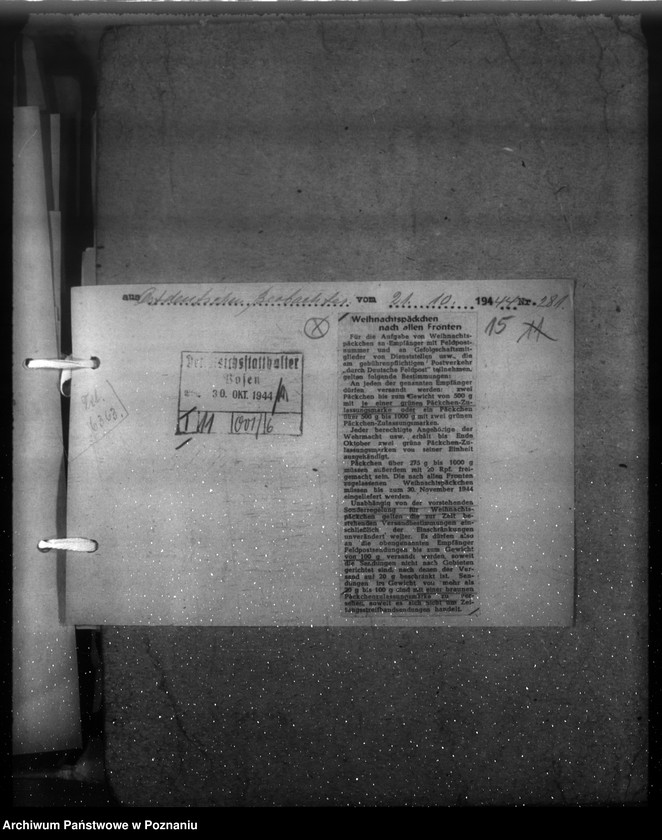 aus Ostdeutschen Beobachter vom 21. 10. 1944 Nr. 281
15
Der Reichsstatthalter
Posen
30. OKT. 1944
I/11 001/6
Weihnachtspäckchen
nach allen Fronten
Für die Aufgabe von Weihnachts-
päckchen an Empfänger mit Feldpost-
nummer und an Gefolgschaftsmit-
glieder von Dienststellen usw., die
am gebührenpflichtigen Postverkehr
„durch Deutsche Feldpost" teilnehmen,
gelten folgende Bestimmungen:
An jeden der genannten Empfänger
dürfen versandt werden: zwei
Päckchen bis zum Gewicht von 500 g
mit je einer grünen Päckchen-Zu-
lassungsmarke oder ein Päckchen
über 500 g bis 1000 g mit zwei grünen
Päckchen-Zulassungsmarken.
Jeder berechtigte Angehörige der
Wehrmacht usw. erhält bis Ende
Oktober zwei grüne Päckchen-Zu-
lassungsmarken von seiner Einheit
ausgehändigt.
Päckchen über 275 g bis 1000 g
müssen außerdem mit 20 Rpf. frei-
gemacht sein. Die nach allen Fronten
zugelassenen Weihnachtspäckchen
müssen bis zum 30. November 1944
eingeliefert werden.
Unabhängig von der vorstehenden
Sonderregelung für Weihnachts-
päckchen gelten die zur Zeit be-
stehenden Versandbestimmungen ein-
schließlich der Einschränkungen
unverändert weiter. Es dürfen also
an die obengenannten Empfänger
Feldpostsendungen bis zum Gewicht
von 100 g versandt werden, soweit
die Sendungen nicht nach Gebieten
gerichtet sind, nach denen der Ver-
sand auf 20 g beschränkt ist. Sen-
dungen im Gewicht von mehr als
20 g bis 100 g sind mit einer braunen
Päckchenzulassungsmarke zu ver-
sehen, soweit es sich nicht um Zei-
tungsstreifbandsendungen handelt.
Archiwum Państwowe w Poznaniu